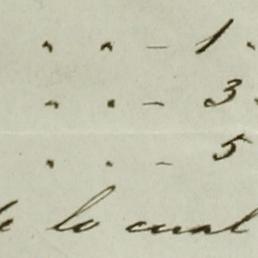 " " - 1.
" " - 3.
" " - 5
de lo cual